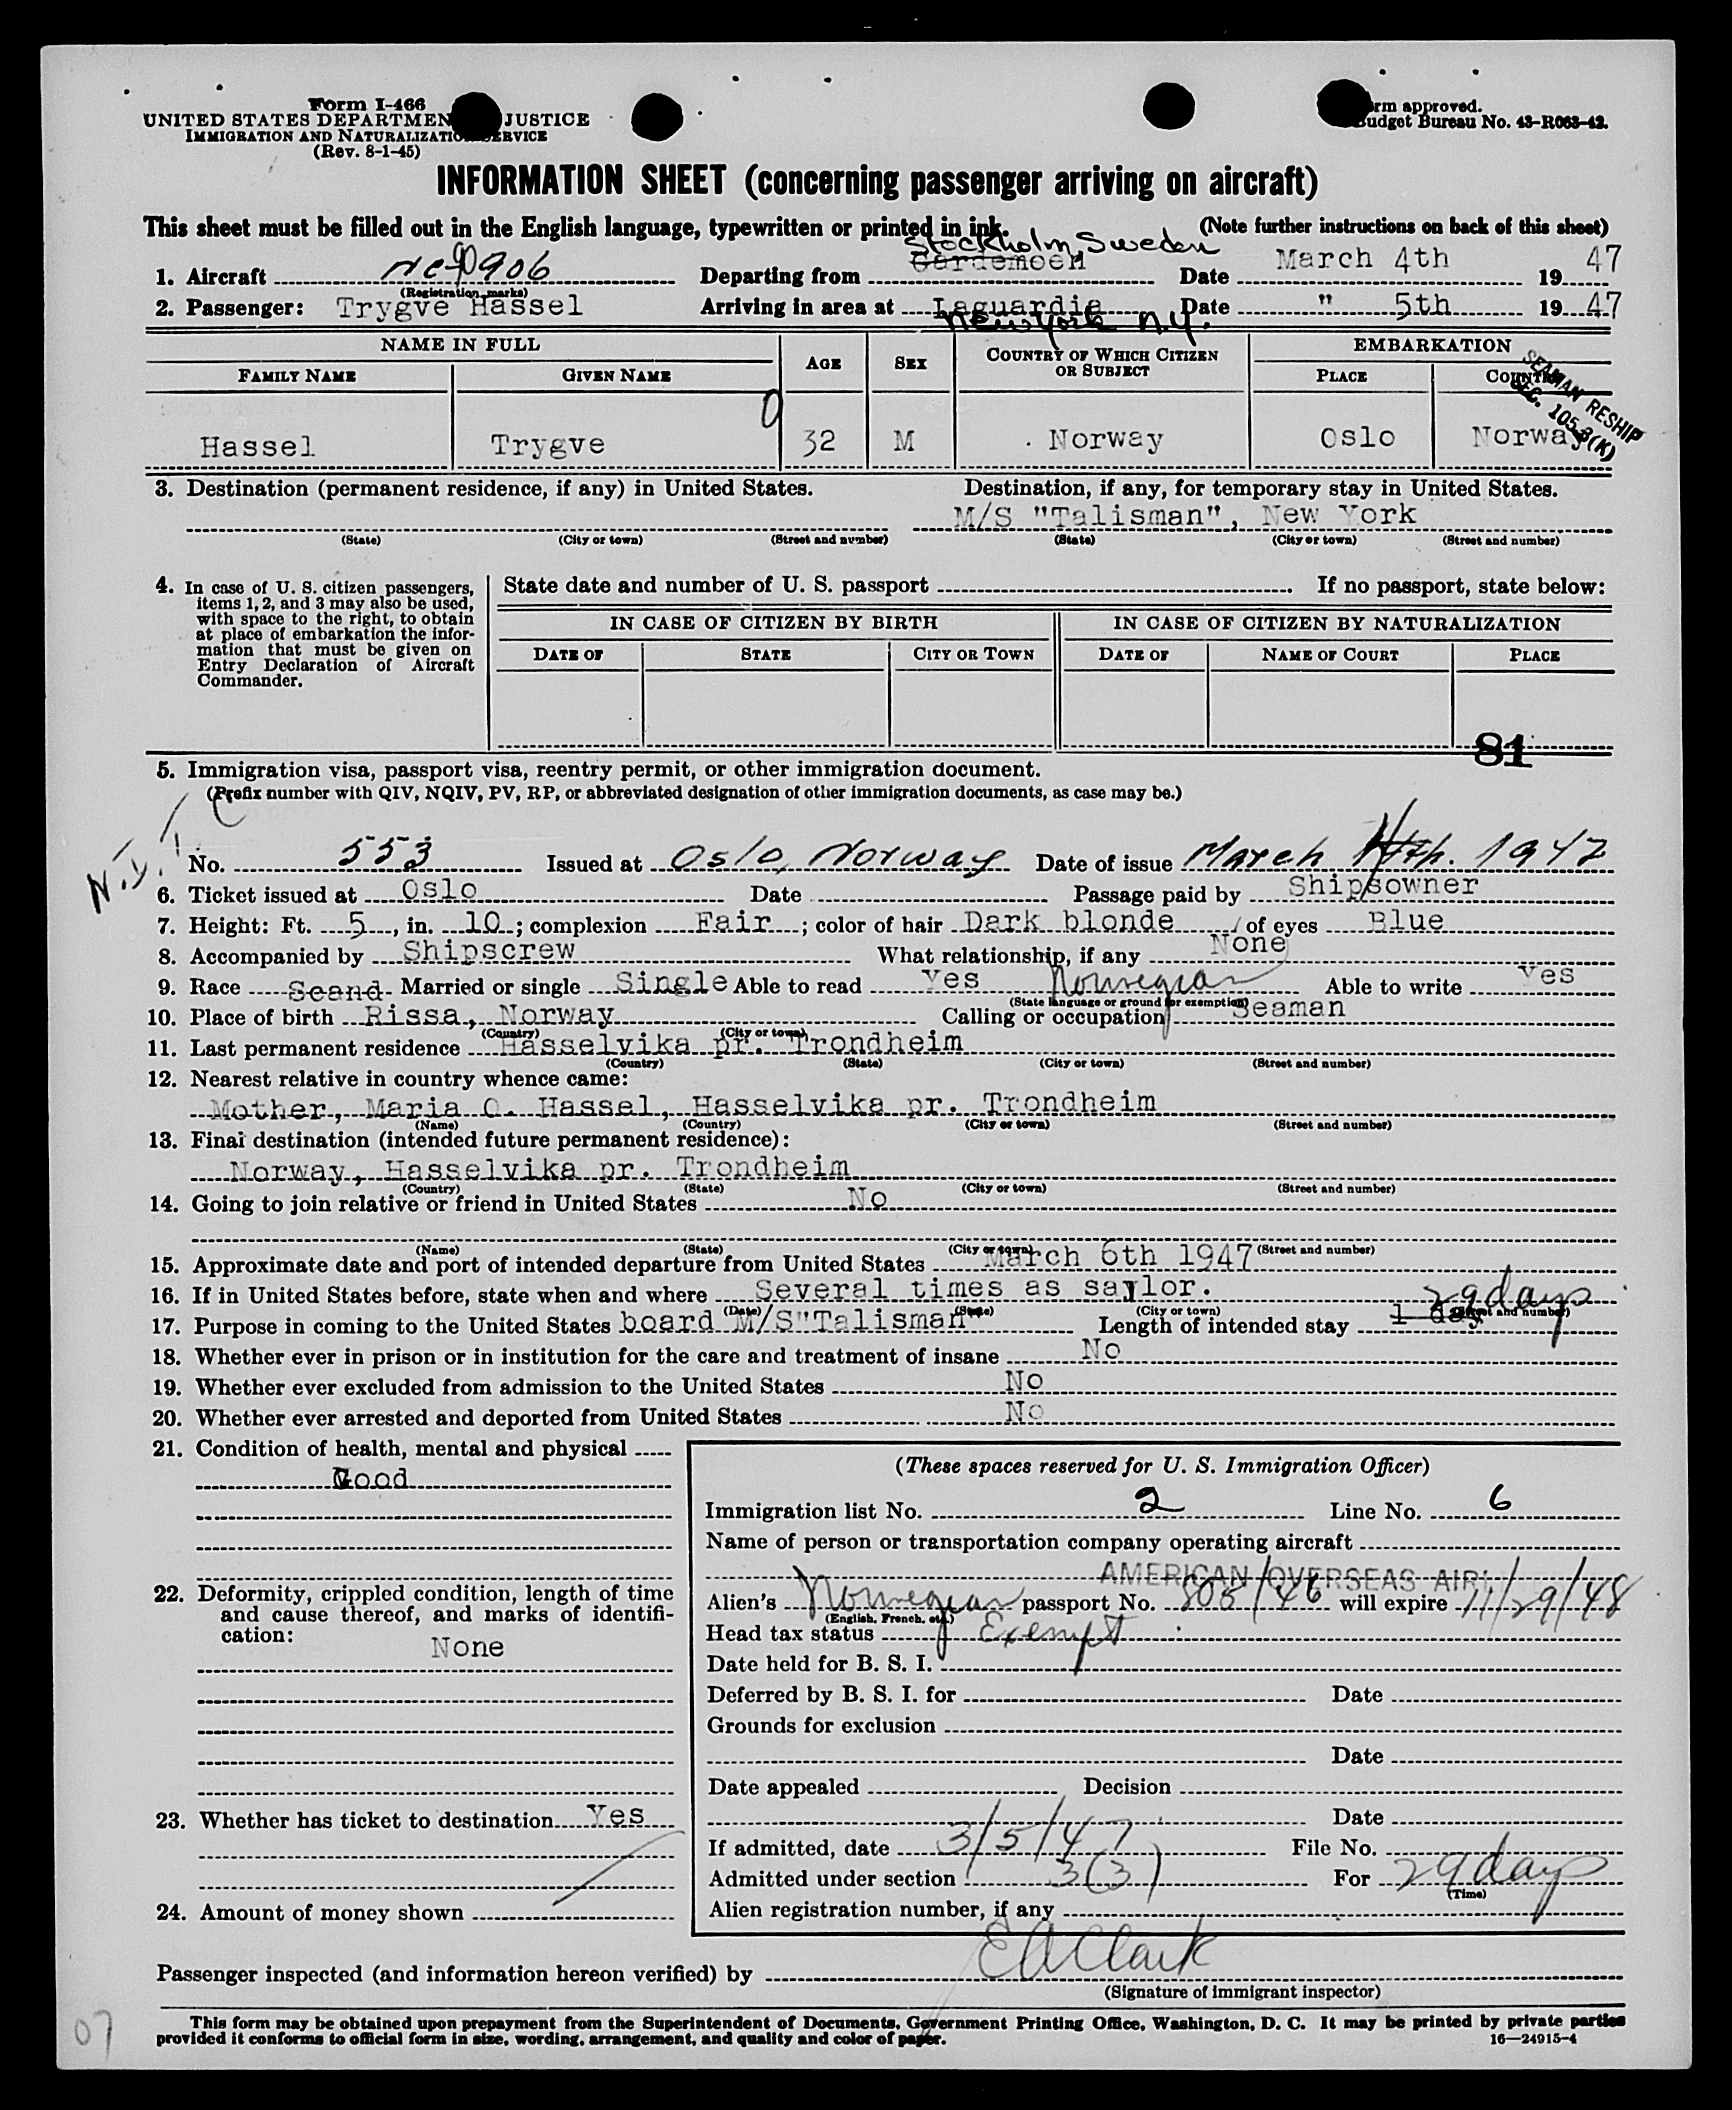 Form I-466
UNITED STATES DEPARTMENT JUSTICE
IMMIGRATION AND NATURALIZATION SERVICE
(Rev. 8-1-45)
Form approved.
Budget Bureau No. 43-R063-42.
INFORMATION SHEET (concerning passenger arriving on aircraft)
This sheet must be filled out in the English language, typewritten or printed in ink. (Note further instructions on back of this sheet)
Stockholm, Sweden
1. Aircraft nc90906 Departing from Gardemoen Date March 4th 1947
(Registration marks)
2. Passenger: Trygve Hassel Arriving in area at Laguardia Date " 5th 1947
New York N.Y.
NAME IN FULL AGE SEX COUNTRY OF WHICH CITIZEN OR SUBJECT EMBARKATION
FAMILY NAME GIVEN NAME PLACE COUNTRY
SEAMAN RESHIP
SEC. 105.3(K)
Hassel Trygve 32 M Norway Oslo Norway
3. Destination (permanent residence, if any) in United States. Destination, if any, for temporary stay in United States.
M/S "Talisman", New York
(State) (City or town) (Street and number) (State) (City or town) (Street and number)
4. In case of U. S. citizen passengers,
items 1, 2, and 3 may also be used,
with space to the right, to obtain
at place of embarkation the infor-
mation that must be given on
Entry Declaration of Aircraft
Commander.
State date and number of U. S. passport . If no passport, state below:
IN CASE OF CITIZEN BY BIRTH IN CASE OF CITIZEN BY NATURALIZATION
DATE OF STATE CITY OR TOWN DATE OF NAME OF COURT PLACE
81
5. Immigration visa, passport visa, reentry permit, or other immigration document.
(Prefix number with QIV, NQIV, PV, RP, or abbreviated designation of other immigration documents, as case may be.)
No. 553 Issued at Oslo, Norway Date of issue March 4th. 1947
6. Ticket issued at Oslo Date Passage paid by Shipsowner
7. Height: Ft. 5, in. 10; complexion Fair; color of hair Dark blonde of eyes Blue
8. Accompanied by Shipscrew What relationship, if any None
9. Race Scand Married or single Single Able to read Yes Norwegian Able to write Yes
(State language or ground for exemption)
10. Place of birth Rissa, Norway Calling or occupation Seaman
(Country) (City or town)
11. Last permanent residence Hasselvika pr. Trondheim
(Country) (State) (City or town) (Street and number)
12. Nearest relative in country whence came:
Mother, Maria O. Hassel, Hasselvika pr. Trondheim
(Name) (Country) (City or town) (Street and number)
13. Final destination (intended future permanent residence):
Norway, Hasselvika pr. Trondheim
(Country) (State) (City or town) (Street and number)
14. Going to join relative or friend in United States No
(Name) (State) (City or town) (Street and number)
15. Approximate date and port of intended departure from United States March 6th 1947
16. If in United States before, state when and where Several times as saylor.
(Date) (State) (City or town) (Street and number)
29 days
17. Purpose in coming to the United States board M/S"Talisman" Length of intended stay 1 day
18. Whether ever in prison or in institution for the care and treatment of insane No
19. Whether ever excluded from admission to the United States No
20. Whether ever arrested and deported from United States No
21. Condition of health, mental and physical
Good
22. Deformity, crippled condition, length of time
and cause thereof, and marks of identifi-
cation:
None
23. Whether has ticket to destination Yes
24. Amount of money shown
(These spaces reserved for U. S. Immigration Officer)
Immigration list No. 2 Line No. 6
Name of person or transportation company operating aircraft
AMERICAN OVERSEAS AIR
Alien's Norwegian passport No. 808/46 will expire 11/29/48
(English, French, etc.)
Head tax status Exempt
Date held for B. S. I.
Deferred by B. S. I. for Date
Grounds for exclusion
Date
Date appealed Decision
Date
If admitted, date 3/5/47 File No.
Admitted under section 3(3) For 29 days
(Time)
Alien registration number, if any
Passenger inspected (and information hereon verified) by E A Clark
(Signature of immigrant inspector)
This form may be obtained upon prepayment from the Superintendent of Documents, Government Printing Office, Washington, D. C. It may be printed by private parties
provided it conforms to official form in size, wording, arrangement, and quality and color of paper. 16—24915-4
07